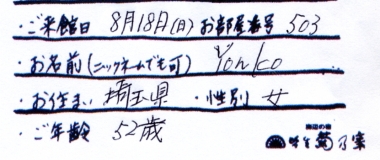 ・ご来館日 8月18日(日) お部屋番号 503
・お名前(ニックネームでも可) Yonko
・お住まい 埼玉県 ・性別 女
・ご年齢 52歳